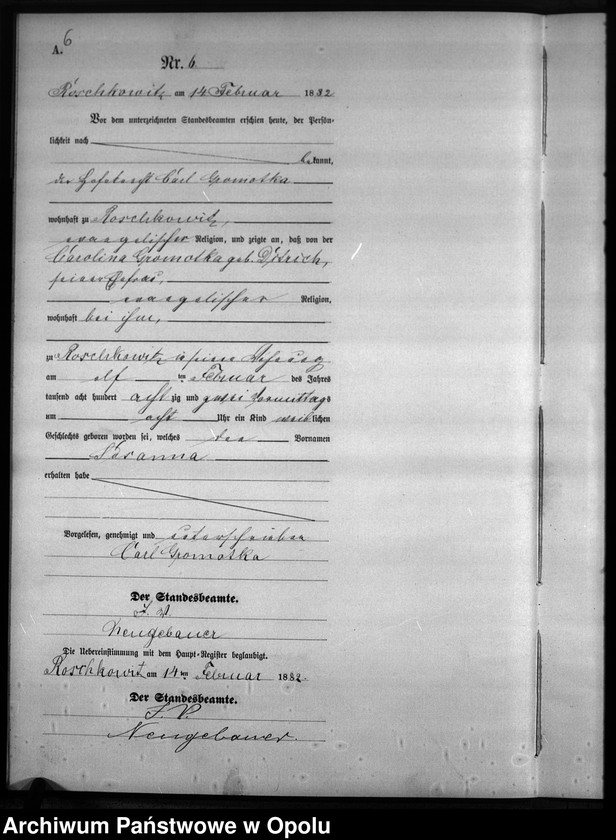 A. 6
Nr. 6
Roschkowitz am 14 Februar 1882
Vor dem unterzeichneten Standesbeamten erschien heute, der Persön-
lichkeit nach
bekannt,
der Carl Gromotka
wohnhaft zu Roschkowitz,
evangelischer Religion, und zeigte an, daß von der
Carolina Gromotka geb. Ditrich,
seiner Ehefrau,
evangelischer Religion,
wohnhaft bei ihm,
zu Roschkowitz in seiner Wohnung
am elf ten Februar des Jahres
tausend acht hundert acht zig und zwei Vormittags
um acht Uhr ein Kind weiblichen
Geschlechts geboren worden sei, welches den Vornamen
Susanna
erhalten habe
Vorgelesen, genehmigt und unterschrieben
Carl Gromotka
Der Standesbeamte.
I. V.
Neugebauer
Die Uebereinstimmung mit dem Haupt-Register beglaubigt.
Roschkowitz am 14 ten Februar 1882
Der Standesbeamte.
I. V.
Neugebauer.
Archiwum Państwowe w Opolu